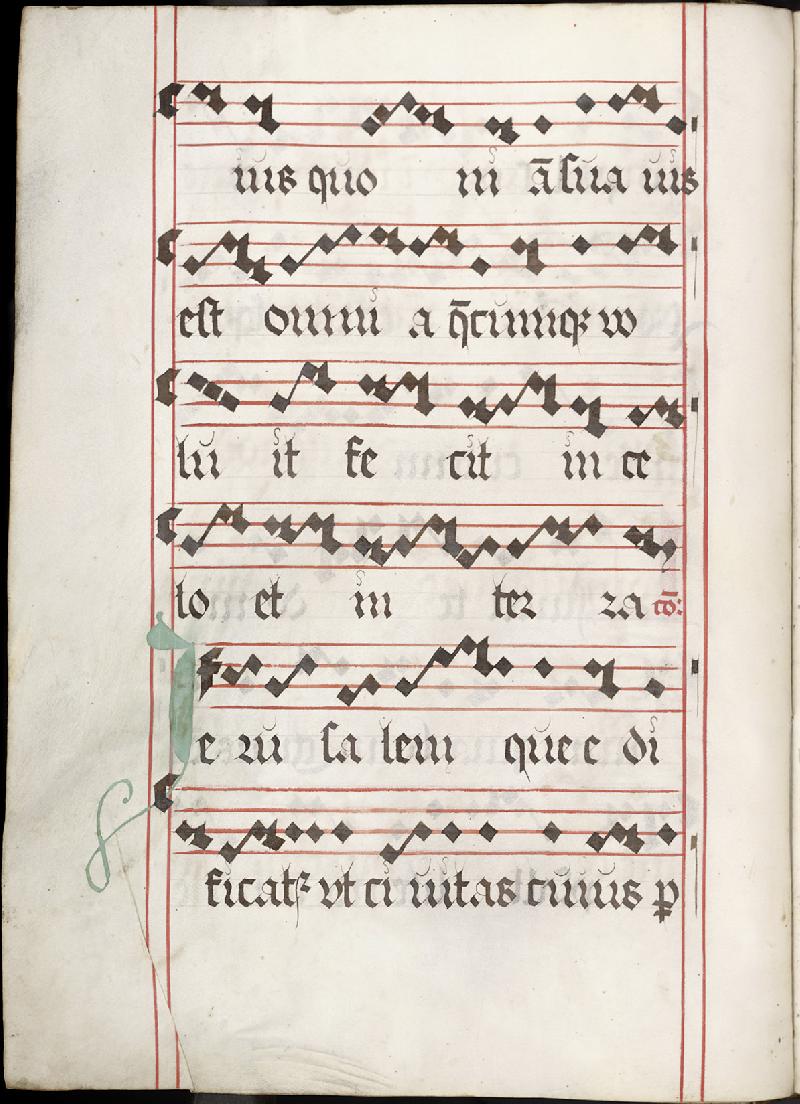 uis quo ni ā sua uis
est omni a q̄cumqꝫ vo
lu it fe cit in ce
lo et in ter ra cō:
Ie ru sa lem que e di
ficatꝛ vt ci uitas cuius ꝑ